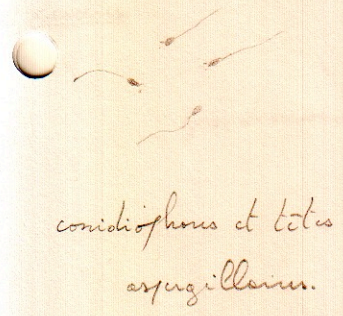 conidiophores et têtes
aspergillaires.